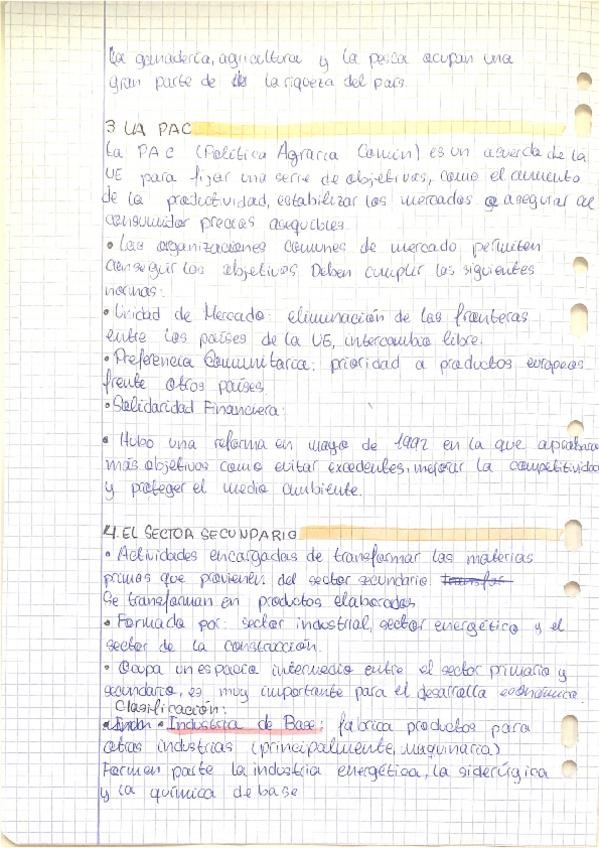 La ganadería, agricultura y la pesca ocupan una
gran parte de la riqueza del país.
3 LA PAC
La PAC (Política Agraria Común) es un acuerdo de la
UE para fijar una serie de objetivos, como el aumento
de la productividad, estabilizar los mercados o asegurar al
consumidor precios asequibles.
• Las organizaciones comunes de mercado permiten
conseguir los objetivos. Deben cumplir las siguientes
normas:
• Unidad de Mercado: eliminación de las fronteras
entre los países de la UE, intercambio libre.
• Preferencia Comunitaria: prioridad a productos europeos
frente otros países.
• Solidaridad Financiera:
• Hubo una reforma en mayo de 1992 en la que aprobaron
más objetivos como evitar excedentes, mejorar la competitividad
y proteger el medio ambiente.
4. EL SECTOR SECUNDARIO
• Actividades encargadas de transformar las materias
primas que provienen del sector secundario
Se transforman en productos elaborados
• Formada por: sector industrial, sector energético y el
sector de la construcción.
• Ocupa un espacio intermedio entre el sector primario y
secundario, es muy importante para el desarrollo económico.
Clasificación:
• Industria de Base: fabrica productos para
otras industrias (principalmente, maquinaria)
Forman parte la industria energética, la siderúrgica
y la química de base